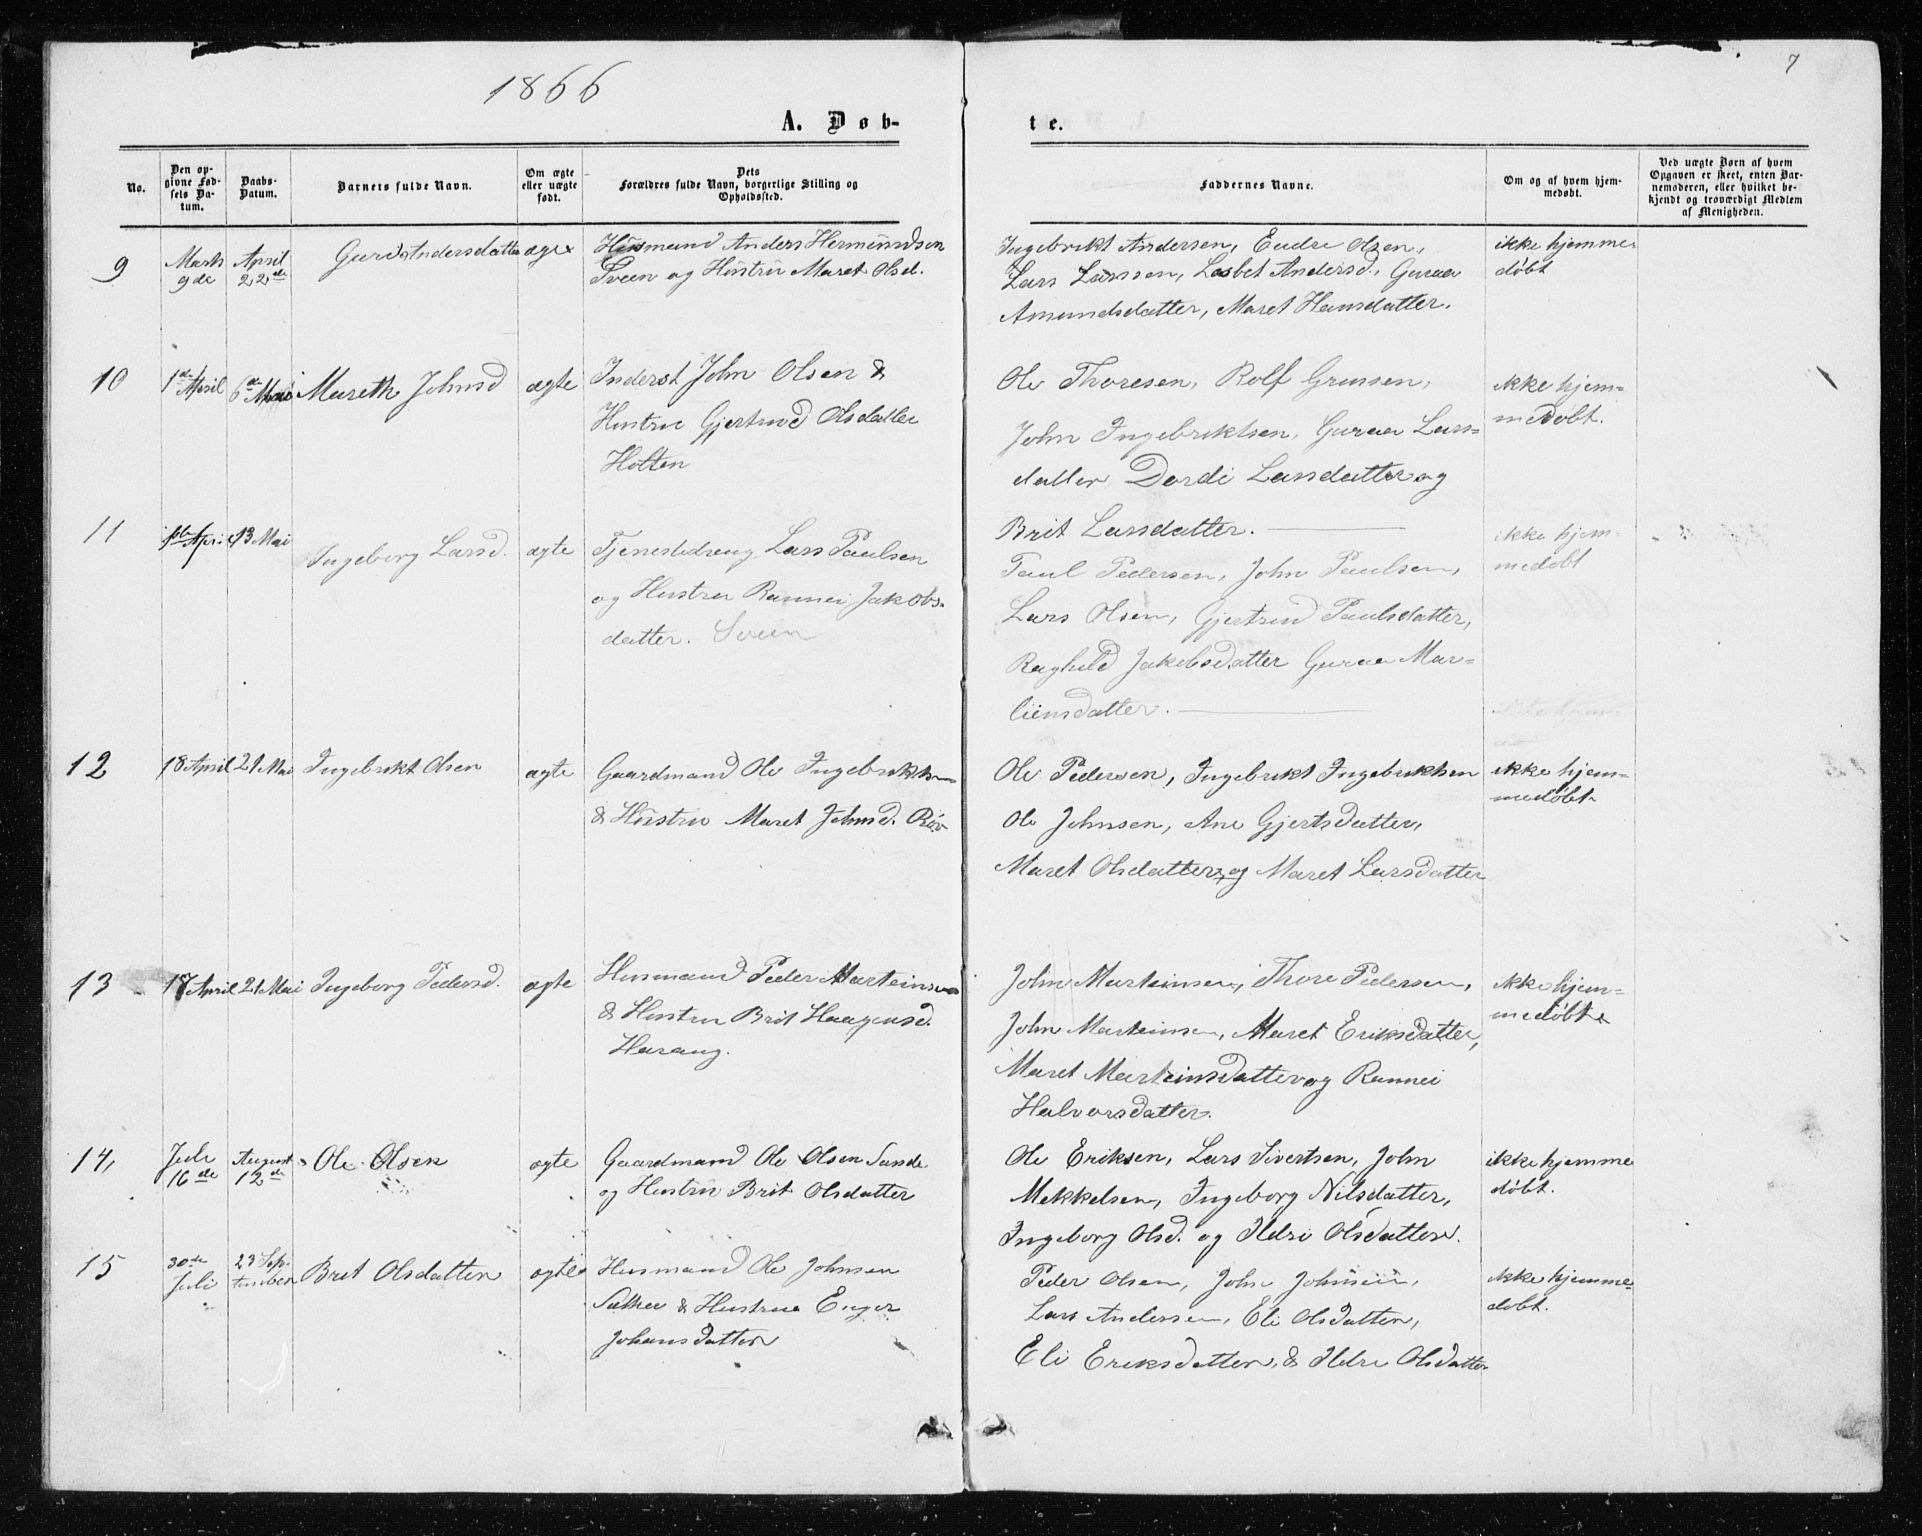 1866
7
A. Døb-
te.
No.
Den op-
givne Fød-
sels Da-
tum.
Daabs-
Datum.
Barnets fulde Navn.
Om ægte
eller uægte
født.
Dets
Forældres fulde Navn, borgerlige Stilling og
Opholdssted.
Faddernes Navne.
Om og af hvem hjem-
medøbt.
Ved uægte Børn af hvem
Opgaven er skeet, enten Bar-
nemoderen, eller hvilket be-
kjendt og troværdigt Medlem
af Menigheden.
9
Marts
9de
April
22de
Guri Andersdatter
ægte
Husmand Anders Hermundsen
Sveen og Hustru Maret Olsd.
Ingebrikt Andersen, Endre Olsen,
Lars Larssen, Lisbet Andersd. Guraa
Amundsdatter, Maret Hansdatter.
ikke hjemme
døbt
10
1de April
6de Mai
Mareth Johnsd
ægte
Inderst John Olsen &
Hustru Gjertrud Olsdatter
Holten
Ole Thoresen, Rolf
John Ingebriktsen, Guraa Lars=
datter, Dordi Larsdatter og
Brit Larsdatter.
ikke hjem=
medøbt.
11
April
13 Mai
Ingeborg Larsd.
ægte
Tjenestedreng Lars Paulsen
og Hustru Rannei Jakobs-
datter. Sveen
Paul Pedersen, John Paulsen,
Lars Olsen, Gjertrud Paulsdatter,
Raghild Jakobsdatter Guraa Mar-
tiensdatter.
ikke hjem-
medøbt
12
18 April
21 Mai
Ingebrikt Olsen
ægte
Gaardmand Ole Ingebriktsen
& Hustru Maret Johnsd. Röv
Ole Pedersen, Ingebrikt Ingebriktsen
Ole Johnsen, Ane Gjertsdatter,
Maret Olsdatter, og Maret Larsdatter
ikke hjem=
medøbt.
13
17 April
21 Mai
Ingeborg Pedersd.
ægte
Husmand Peder Marteinsen
& Hustru Brit Haagensd.
Harang.
John Marteinsen, Thore Pedersen,
John Marteinsen, Maret Eriksdatter,
Maret Marteinsdatter og Rannei
Halvorsdatter.
ikke hjem=
medøbt.
14,
Juli
16de
August
12de
Ole Olsen
ægte
Gaardmand Ole Olsen Sande
og Hustru Brit Olsdatter
Ole Eriksen, Lars Sivertsen, John
Mekkelsen, Ingeborg Nilsdatter,
Ingeborg Olsd. og Ildri Olsdatter.
ikke hjemme
døbt.
15
30de
Juli
23 Sep-
tember
Brit Olsdatter
ægte
Husmand Ole Johnsen
Sæther & Hustrue Enger
Johansdatter
Peder Olsen, John Johnsen,
Lars Andersen, Eli Olsdatter,
Eli Eriksdatter, & Ildri Olsdatter
ikke hjemme-
døbt.